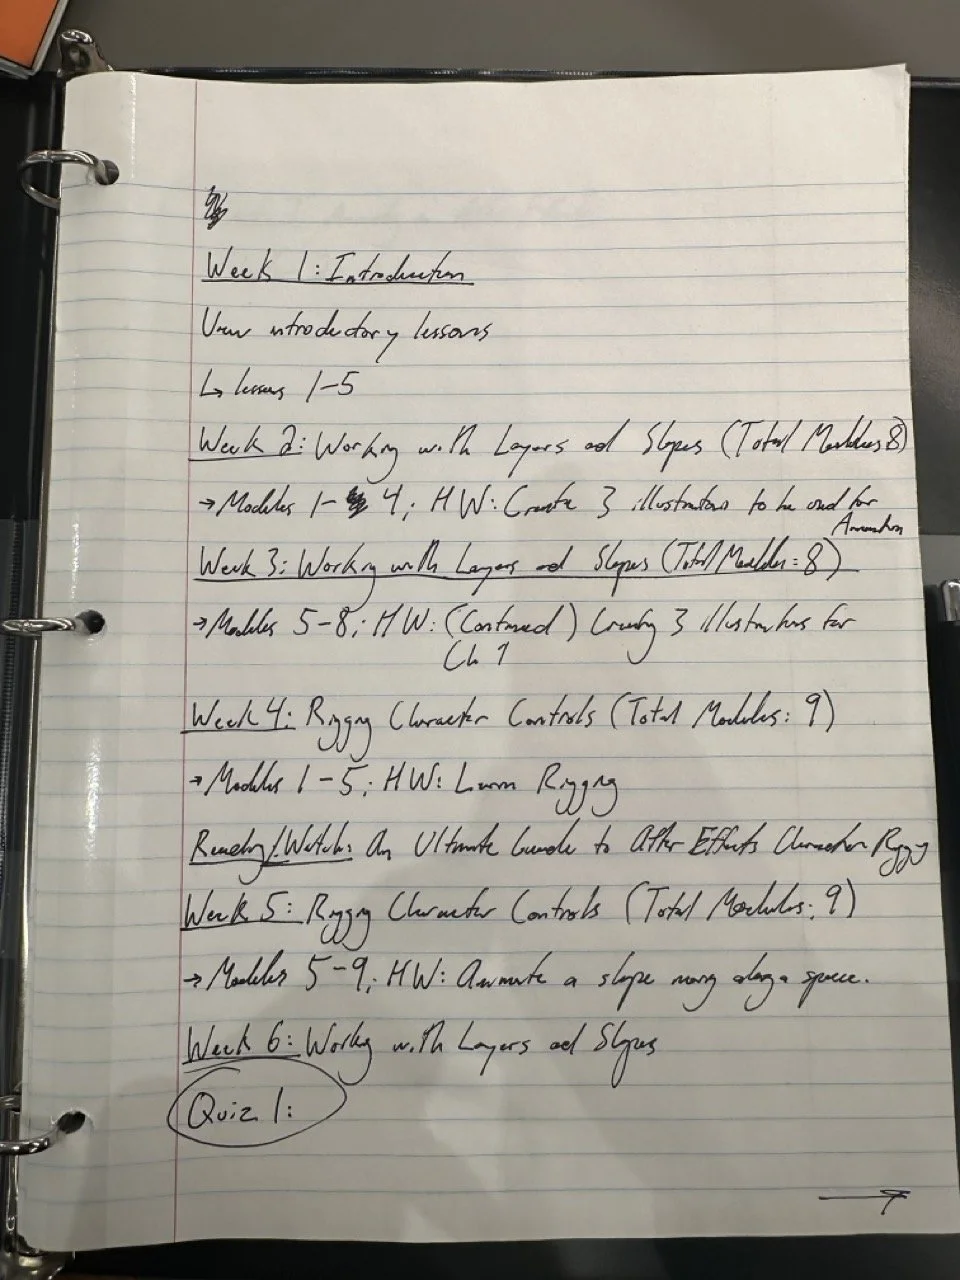 Week 1: Introduction
View introductory lessons
↳ lessons 1-5
Week 2: Working with Layers and Slopes (Total Modules 8)
→ Modules 1- 4; HW: Create 3 illustrations to be used for
Animation
Week 3: Working with Layers and Slopes (Total Modules: 8)
→ Modules 5-8; HW: (Continued) Creating 3 illustrations for
Ch 1
Week 4: Rigging Character Controls (Total Modules: 9)
→ Modules 1-5; HW: Learn Rigging
Reading/Watch: An Ultimate Guide to After Effects Character Rigging
Week 5: Rigging Character Controls (Total Modules: 9)
→ Modules 5-9; HW: Animate a slope moving along a space.
Week 6: Working with Layers and Slopes
Quiz 1:
→